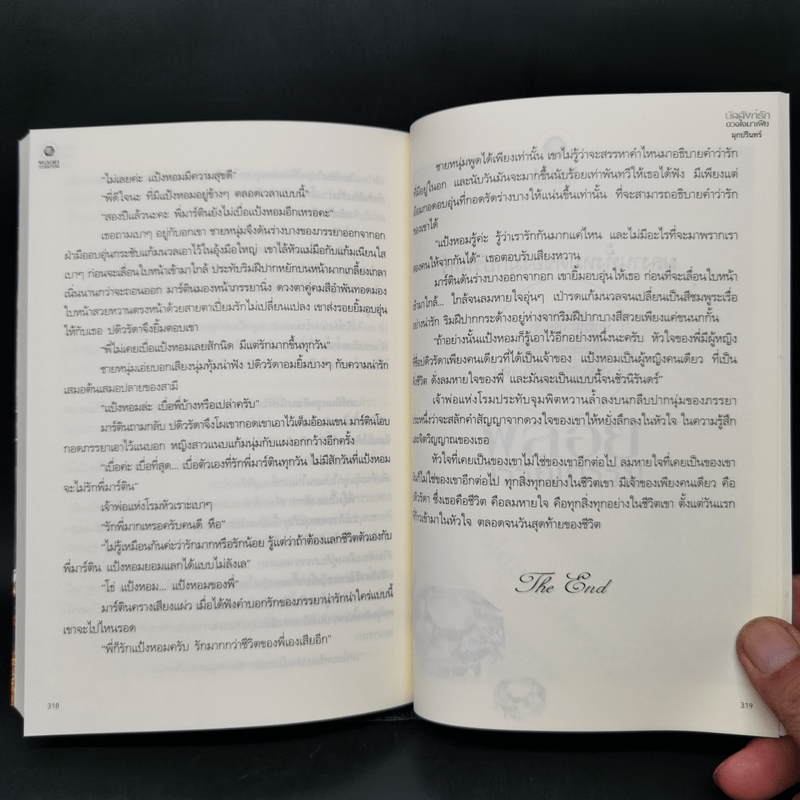 "ไม่เลยค่ะ แป้งหอมมีความสุขดี"
"พี่ดีใจนะ ที่มีแป้งหอมอยู่ข้างๆ ตลอดเวลาแบบนี้"
"สองปีแล้วนะคะ พี่มาร์ตินยังไม่เบื่อแป้งหอมอีกเหรอคะ"
เธอถามเบาๆ อยู่กับอกเขา ชายหนุ่มจึงดันร่างบางของภรรยาออกจากอก
ฝ่ามืออบอุ่นกระชับแก้มนวลเอาไว้ในอุ้งมือใหญ่ เขาไล้หัวแม่มือกับแก้มเนียนใส
เบาๆ ก่อนจะเลื่อนใบหน้าเข้ามาใกล้ ประทับริมฝีปากหยักบนหน้าผากเกลี้ยงเกลา
เนิ่นนานกว่าจะถอนออก มาร์ตินมองหน้าภรรยานิ่ง ดวงตาคู่คมสีอำพันทอดมอง
ใบหน้าสวยหวานตรงหน้าด้วยสายตาเปี่ยมรักไม่เปลี่ยนแปลง เขาส่งรอยยิ้มอบอุ่น
ให้กับเธอ ปดิวรัดาจึงยิ้มตอบเขา
"พี่ไม่เคยเบื่อแป้งหอมเลยสักนิด มีแต่รักมากขึ้นทุกวัน"
ชายหนุ่มเอ่ยบอกเสียงนุ่มทุ้มน่าฟัง ปดิวรัดาอมยิ้มบางๆ กับความน่ารัก
เสมอต้นเสมอปลายของสามี
"แป้งหอมล่ะ เบื่อพี่บ้างหรือเปล่าครับ"
มาร์ตินถามกลับ ปดิวรัดาจึงโผเขากอดเขาเอาไว้เต็มอ้อมแขน มาร์ตินโอบ
กอดภรรยาเอาไว้แนบอก หญิงสาวแนบแก้มนุ่มกับแผงอกกว้างอีกครั้ง
"เบื่อค่ะ เบื่อที่สุด... เบื่อตัวเองที่รักพี่มาร์ตินทุกวัน ไม่มีสักวันที่แป้งหอม
จะไม่รักพี่มาร์ติน"
เจ้าพ่อแห่งโรมหัวเราะเบาๆ
"รักพี่มากเหรอครับคนดี หือ"
"ไม่รู้เหมือนกันค่ะว่ารักมากหรือรักน้อย รู้แต่ว่าถ้าต้องแลกชีวิตตัวเองกับ
พี่มาร์ติน แป้งหอมยอมแลกได้แบบไม่ลังเล"
"โธ่ แป้งหอม... แป้งหอมของพี่"
มาร์ตินครางเสียงแผ่ว เมื่อได้ฟังคำบอกรักของภรรยาน่ารักน่าใคร่แบบนี้
เขาจะไปไหนรอด
"พี่ก็รักแป้งหอมครับ รักมากกว่าชีวิตของพี่เองเสียอีก"
318
ดวงใจมาเฟีย
มุกปรินทร์
ชายหนุ่มพูดได้เพียงเท่านั้น เขาไม่รู้ว่าจะสรรหาคำไหนมาอธิบายคำว่ารัก
ที่มีอยู่ในอก และนับวันมันจะมากขึ้นนับร้อยเท่าพันทวีให้เธอได้ฟัง มีเพียงแต่
อ้อมกอดอบอุ่นที่กอดรัดร่างบางให้แน่นขึ้นเท่านั้น ที่จะสามารถอธิบายคำว่ารัก
ของเขาได้
"แป้งหอมรู้ค่ะ รู้ว่าเรารักกันมากแค่ไหน และไม่มีอะไรที่จะมาพรากเรา
สองคนให้จากกันได้" เธอตอบรับเสียงหวาน
มาร์ตินดันร่างบางออกจากอก เขายิ้มอบอุ่นให้เธอ ก่อนที่จะเลื่อนใบหน้า
เข้ามาใกล้... ใกล้จนลมหายใจอุ่นๆ เป่ารดแก้มนวลจนเปลี่ยนเป็นสีชมพูระเรื่อ
อย่างน่ารัก ริมฝีปากกระด้างอยู่ห่างจากริมฝีปากบางสีสวยเพียงแค่ขนนกกั้น
"ถ้าอย่างนั้นแป้งหอมก็รู้เอาไว้อีกอย่างหนึ่งนะครับ หัวใจของพี่มีผู้หญิง
ชื่อปดิวรัดาเพียงคนเดียวที่ได้เป็นเจ้าของ แป้งหอมเป็นผู้หญิงคนเดียว ที่เป็น
ทั้งชีวิต ดั่งลมหายใจของพี่ และมันจะเป็นแบบนี้จนชั่วนิรันดร์"
เจ้าพ่อแห่งโรมประทับจุมพิตหวานล้ำลงบนกลีบปากนุ่มของภรรยา
ประหนึ่งว่าจะสลักคำสัญญาจากดวงใจของเขาให้หยั่งลึกลงในหัวใจ ในความรู้สึก
และจิตวิญญาณของเธอ
หัวใจที่เคยเป็นของเขาไม่ใช่ของเขาอีกต่อไป ลมหายใจที่เคยเป็นของเขา
มันก็ไม่ใช่ของเขาอีกต่อไป ทุกสิ่งทุกอย่างในชีวิตเขา มีเจ้าของเพียงคนเดียว คือ
ปดิวรัดา ซึ่งเธอคือชีวิต คือลมหายใจ คือทุกสิ่งทุกอย่างในชีวิตเขา ตั้งแต่วันแรก
ที่ก้าวเข้ามาในหัวใจ ตลอดจนวันสุดท้ายของชีวิต
The End
319